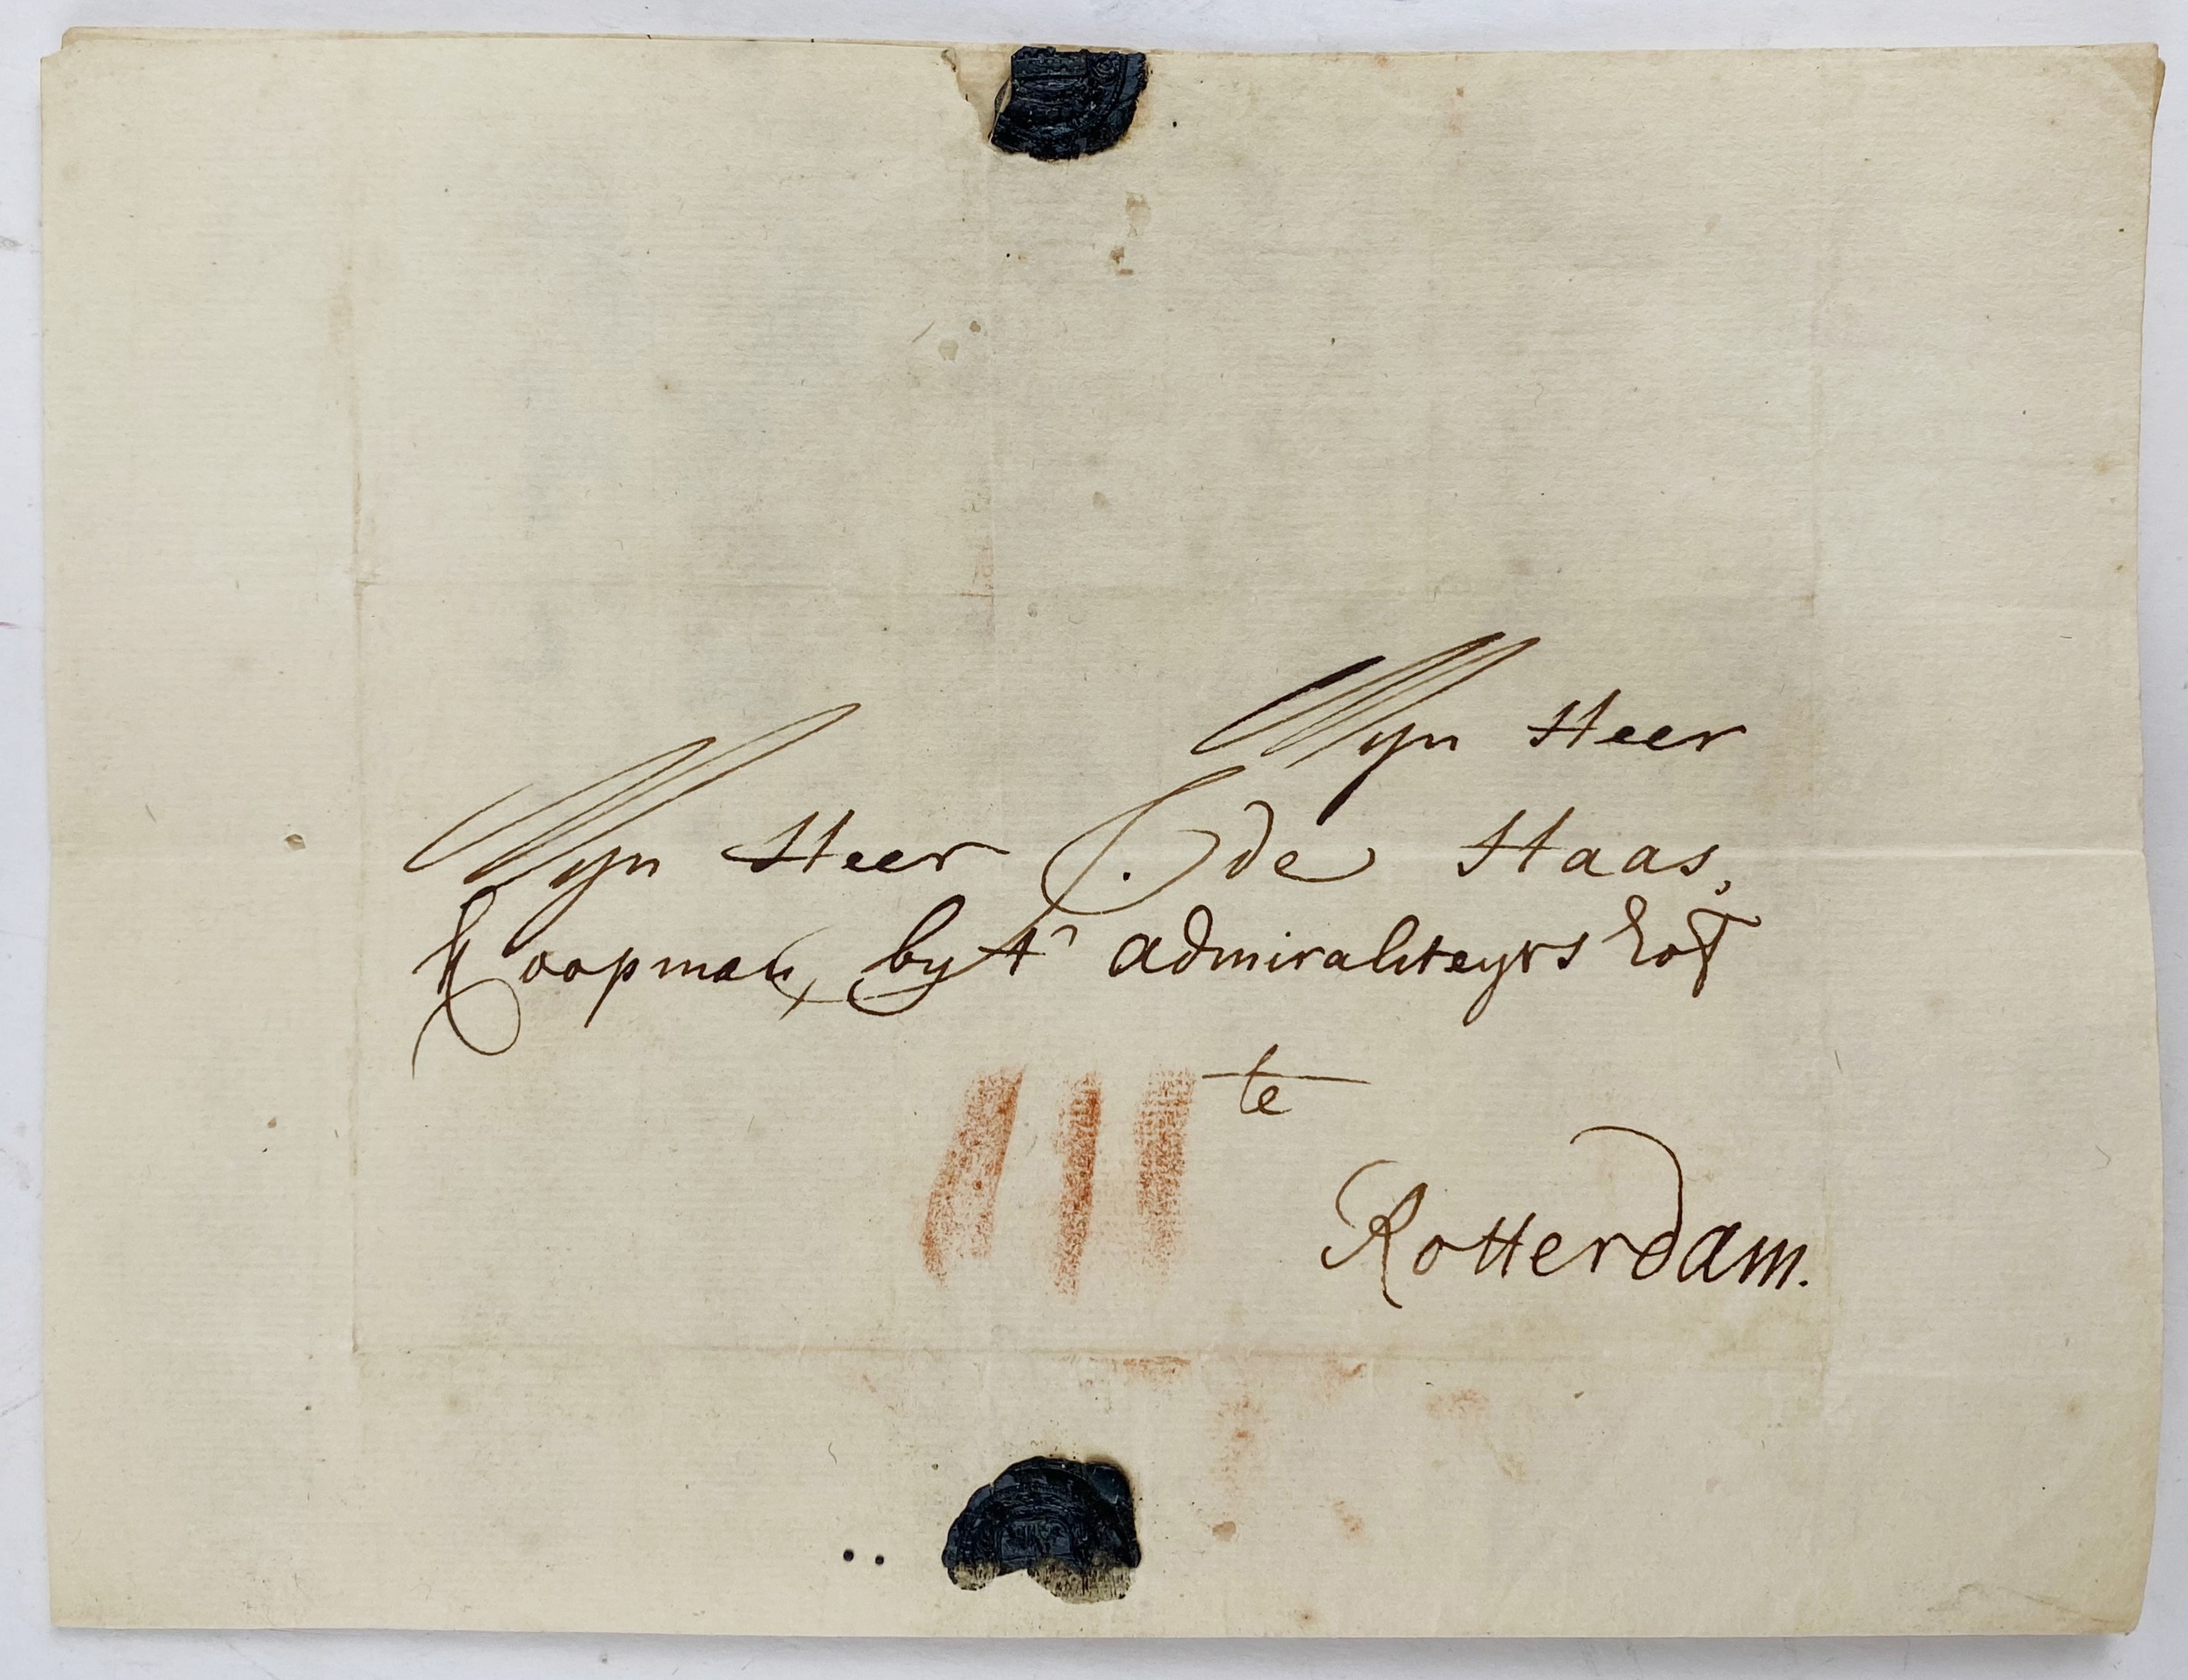 Myn Heer
Myn Heer C. de Haas,
Koopman, by t' admiraliteyts hof
te
Rotterdam.
III